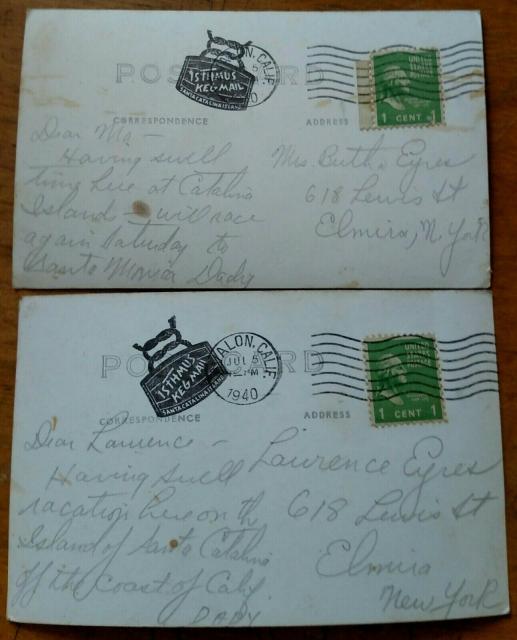 POST CARD
ALON, CALIF.
ISTHMUS
KEG-MAIL
SANTA CATALINA ISLAND
5
40
UNITED
STATES
POSTAGE
1 CENT 1
CORRESPONDENCE
ADDRESS
Dear Ma —
Having swell
time here at Catalina
Island — will race
again Saturday to
Santa Monica Dady
Mrs. Ruth Eyres
618 Lewis St
Elmira, N. York
POST CARD
ALON, CALIF.
JUL 5
12 M
1940
ISTHMUS
KEG-MAIL
SANTA CATALINA ISLAND
UNITED
STATES
POSTAGE
1 CENT 1
CORRESPONDENCE
ADDRESS
Dear Laurence —
Having swell
vacation here on th
Island of Santa Catalina
off the coast of Caly.
DADY
Laurence Eyres
618 Lewis St
Elmira
New York